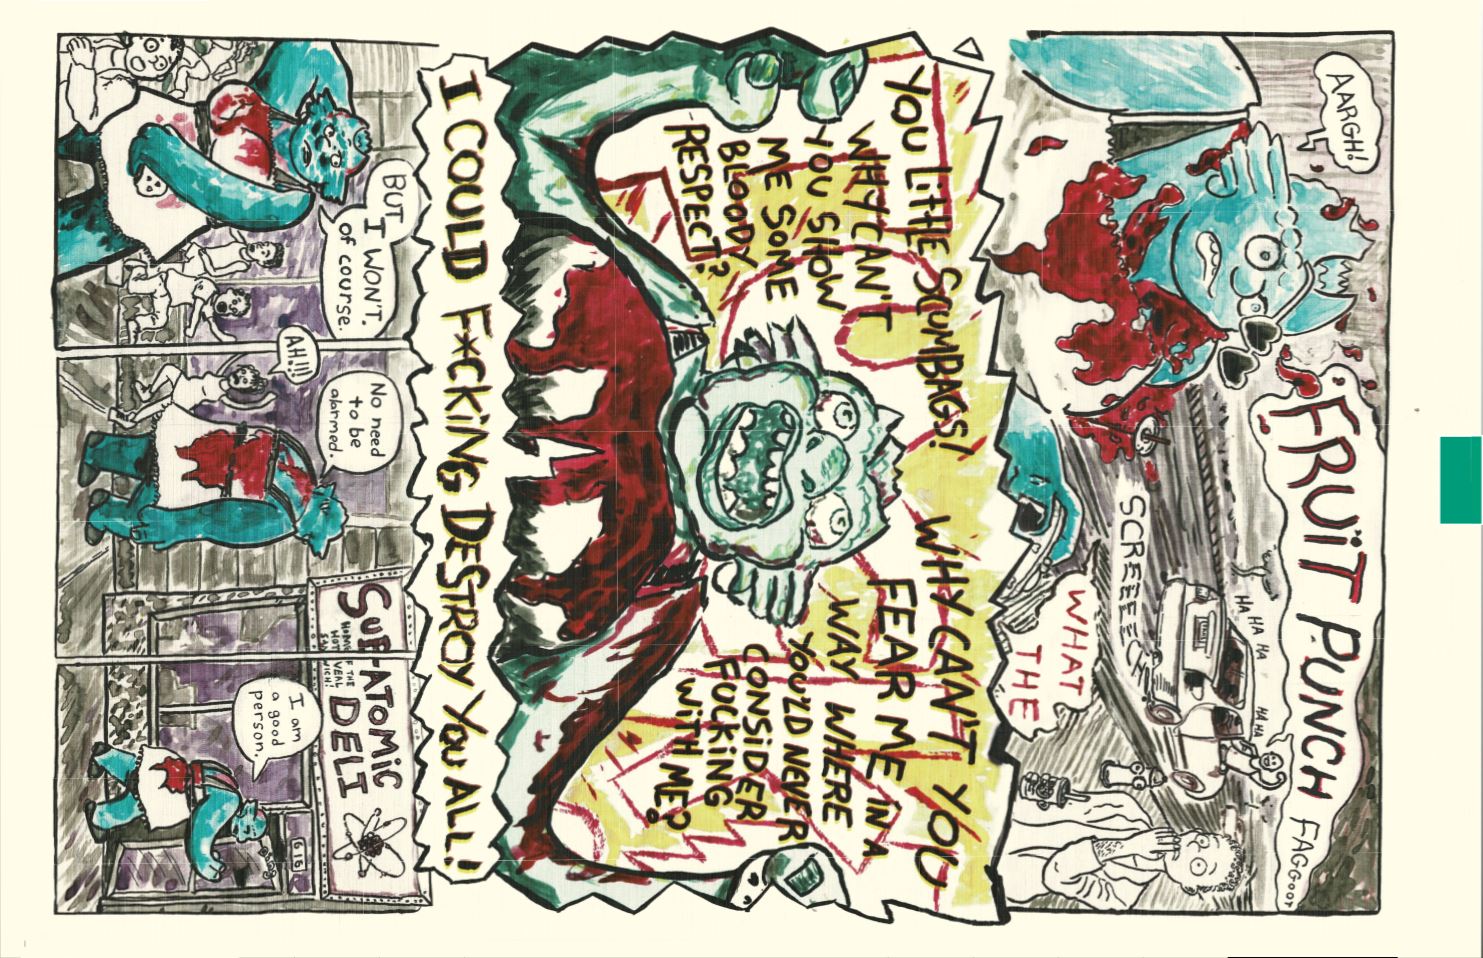 AARGH!
FRUïT PUNCH FAGGOOT
HA HA HA HA
HA HA
SCREEEECH
WHAT
THE
YOU LITTLE SCUMBAGS!
WHY CAN'T
YOU SHOW
ME SOME
BLOODY
RESPECT?
WHY CAN'T YOU
FEAR ME IN A
WAY WHERE
YOU'D NEVER
CONSIDER
FUCKING
WITH ME?
I COULD F*CKING DESTROY YOU ALL!
BUT
I WON'T.
of course.
AH!!!
No need
to be
alarmed.
SUB-ATOMIC
DELI
HOME OF THE
HOT VEAL
SANDWICH!
616
I am
a good
person.